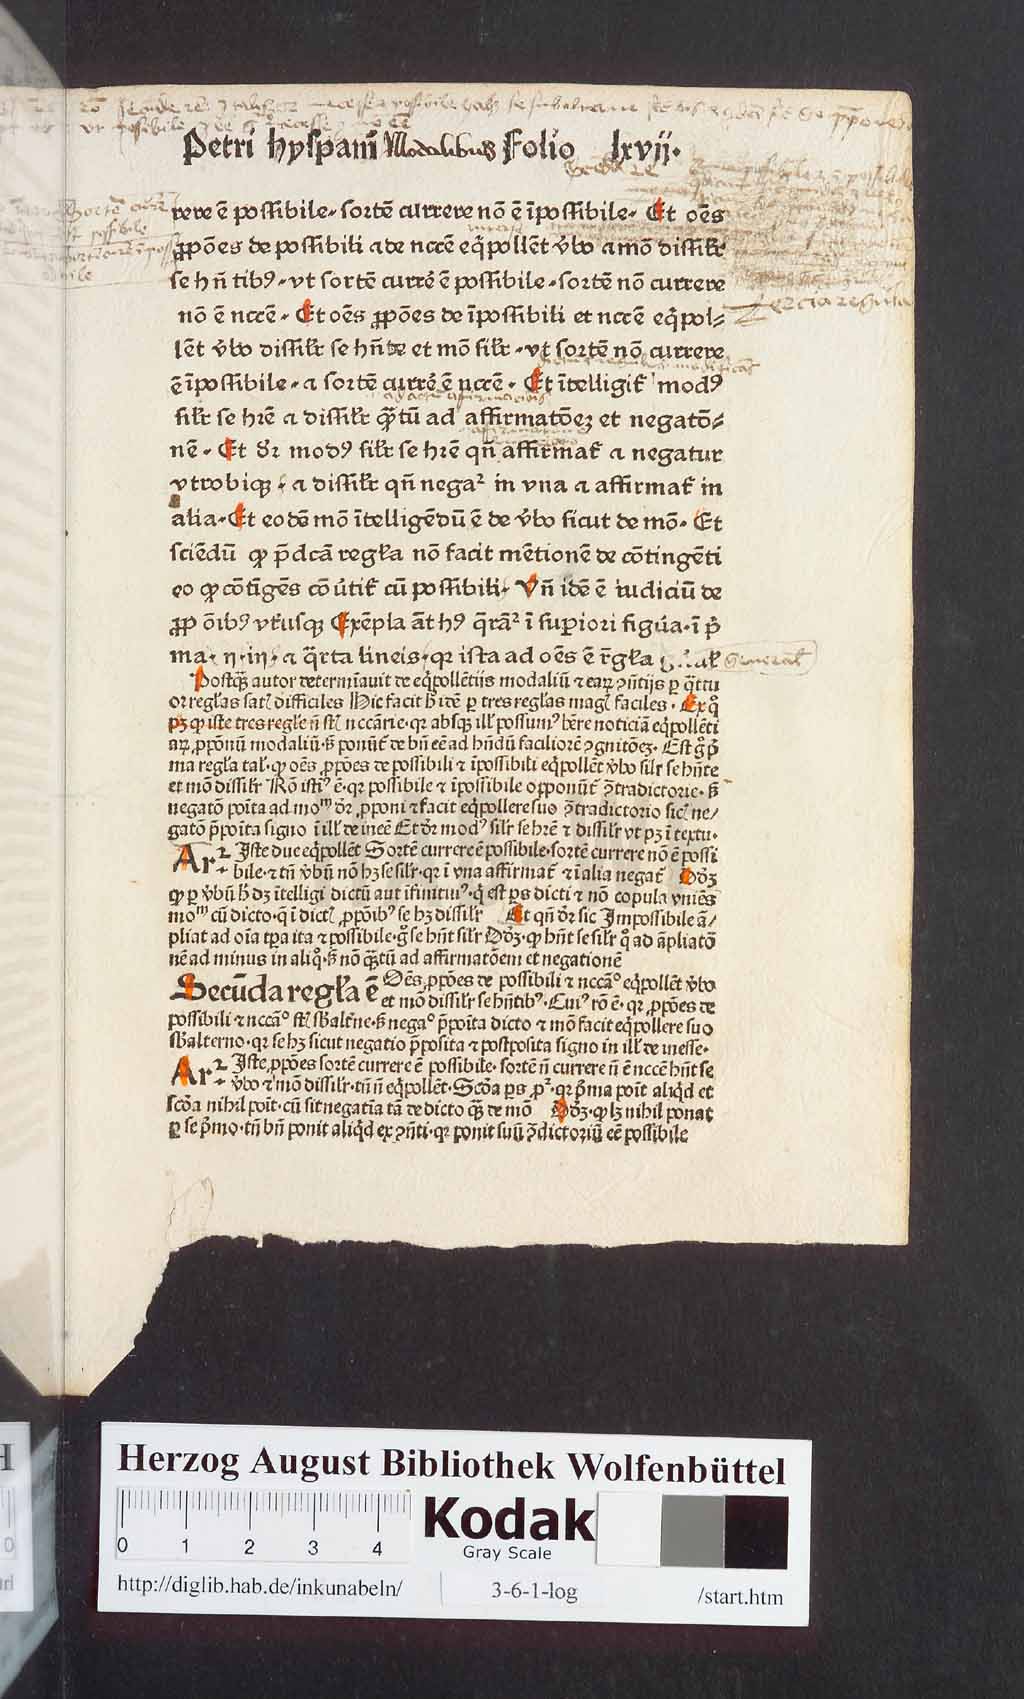 Petri hyspani Modalibus Folio lxvij.
rere ē possibile. sortē currere nō ē īpossibile. Et oēs
ꝓpōes de possibili ⁊ de nccē eq̄pollēt v̄bo ⁊ mō dissilr̄
se hn̄tibꝰ. vt sortē curre̓ ē possibile. sortē nō currere
nō ē nccē. Et oēs ꝓpōes de īpossibili et nccē eq̄pol⸗
lēt v̄bo dissilr̄ se hn̄te et mō silr̄. vt sortē nō currere
ē īpossibile. ⁊ sortē curre̓ ē nccē. Et ītelligit̄ modꝰ
silr̄ se hr̄e ⁊ dissilr̄ q̄tū ad affirmatōeꝫ et negatō⸗
nē. Et dr̄ modꝰ silr̄ se hr̄e qn̄ affirmat̄ ⁊ negatur
vtrobiqꝫ. ⁊ dissilr̄ qn̄ negaᷣ in vna ⁊ affirmat̄ in
alia. Et eodē mō ītelligēdū ē de v̄bo sicut de mō. Et
sciēdū ꝙ p̄dcā regl̄a nō facit mētionē de cōtingēti
eo ꝙ cōtīgēs cōu̓tit̄ cū possibili. Vn̄ idē ē iudiciū de
ꝓpōibꝰ vtriusqꝫ Exēpla āt hꝰ q̄raᷣ ī supiori figu̓a. ī p̄
ma. ij. iij. ⁊ q̄rta lineis. qꝛ ista ad oēs ē r̄gl̄a
generalꝭ
Postq̄ꝫ autor determīauit de eq̄pollētijs modaliū ⁊ eaꝝ ꝯn̄tijs ꝑ q̄ttu
or regl̄as satꝭ difficiles Hic facit h̄ idē ꝑ tres regl̄as magꝭ faciles. Ex qͦ
pꝫ ꝙ iste tres regl̄e n̄ st̄ nccārie. qꝛ absqꝫ illꝭ possumꝰ hr̄e noticiā eq̄pollēti
aꝝ ꝓpōnū modaliū. s̄ ponūt̄ de bn̄ eē ad hn̄dū faciliorē ꝯgnitōeꝫ. Est gͦ p̄
ma regl̄a talꝭ. ꝙ oēs ꝓpōes de possibili ⁊ īpossibili eq̄pollēt v̄bo silr̄ se hn̄te
et mō dissilr̄ Rō istiꝰ ē. qꝛ possibile ⁊ īpossibile opponūt̄ ꝯtradictorie. s̄
negatō p̄oīta ad moᵐ dr̄ ꝓponi ⁊ facit eq̄pollere suo ꝯtradictorio sicꝭ ne⸗
gatō p̄poīta signo ī illꝭ de ineē Et dr̄ modꝰ silr̄ se hr̄e ⁊ dissilr̄ vt pꝫ ī textu.
Arᷣ. Iste due eq̄pollēt Sortē currere ē possibile. sortē currere nō ē possi
bile. ⁊ tn̄ v̄bū nō hꝫ se silr̄. qꝛ ī vna affirmat̄ ⁊ ī alia negat̄ Dōꝫ
ꝙ ꝑ v̄bū h̄ dꝫ ītelligi dictū aut īfinitiuꝰ. q̄ est ꝑs dicti ⁊ nō copula vniēs
moᵐ cū dicto. q̄ ī dictꝭ ꝓpōibꝰ se hꝫ dissilr̄ Et qn̄ dr̄ sic Impossibile ā⸗
pliat ad oīa tꝑa ita ⁊ possibile. gͦ se hn̄t silr̄ Dōꝫ. ꝙ hn̄t se silr̄ qͦ ad āpliatō
nē ad minus in aliqͦ. s̄ nō q̄ꝫtū ad affirmatōem et negationē
Secūda regl̄a ē Oēs ꝓpōes de possibili ⁊ nccāᵒ eq̄pollēt v̄bo
et mō dissilr̄ se hn̄tibꝰ. Cuiꝰ rō ē. qꝛ ꝓpōes de
possibili ⁊ nccāᵒ st̄ sb̄altn̄e. s̄ negaᵒ p̄poīta dicto ⁊ mō facit eq̄pollere suo
sb̄alterno. qꝛ se hꝫ sicut negatio p̄posita ⁊ postposita signo in illꝭ de inesse.
Arᷣ. Iste ꝓpōes sortē currere ē possibile. sortē n̄ currere n̄ ē nccē hn̄t se
v̄bo ⁊ mō dissilr̄. tn̄ n̄ eq̄pollēt. Scōa ꝑs ꝓᷣ. qꝛ p̄ma poīt aliqͥd et
scōa nihil poīt. cū sit negatīa tā de dicto q̄ꝫ de mō Dōꝫ. ꝙ lꝫ nihil ponat
ꝑ se p̄mo. tn̄ bn̄ ponit aliqͥd ex ꝯn̄ti. qꝛ ponit suū ꝯdictoriū eē possibile
Tercia regula
Herzog August Bibliothek Wolfenbüttel
0 1 2 3 4
Kodak
Gray Scale
http://diglib.hab.de/inkunabeln/ 3-6-1-log /start.htm